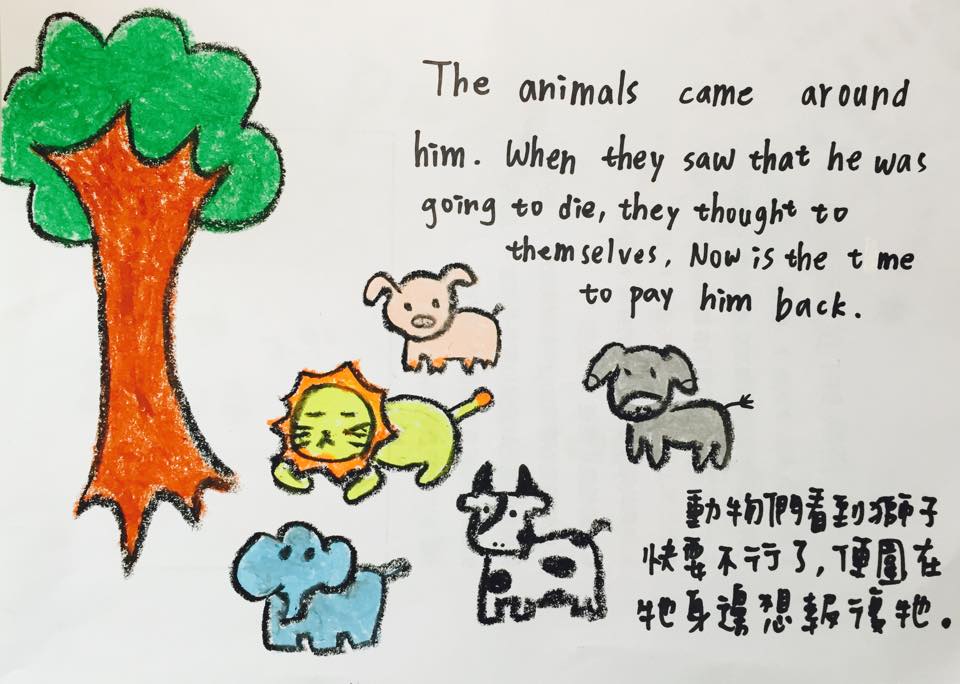 The animals came around
him. When they saw that he was
going to die, they thought to
themselves, Now is the t me
to pay him back.
動物們看到獅子
快要不行了，便圍在
牠身邊想報復牠。